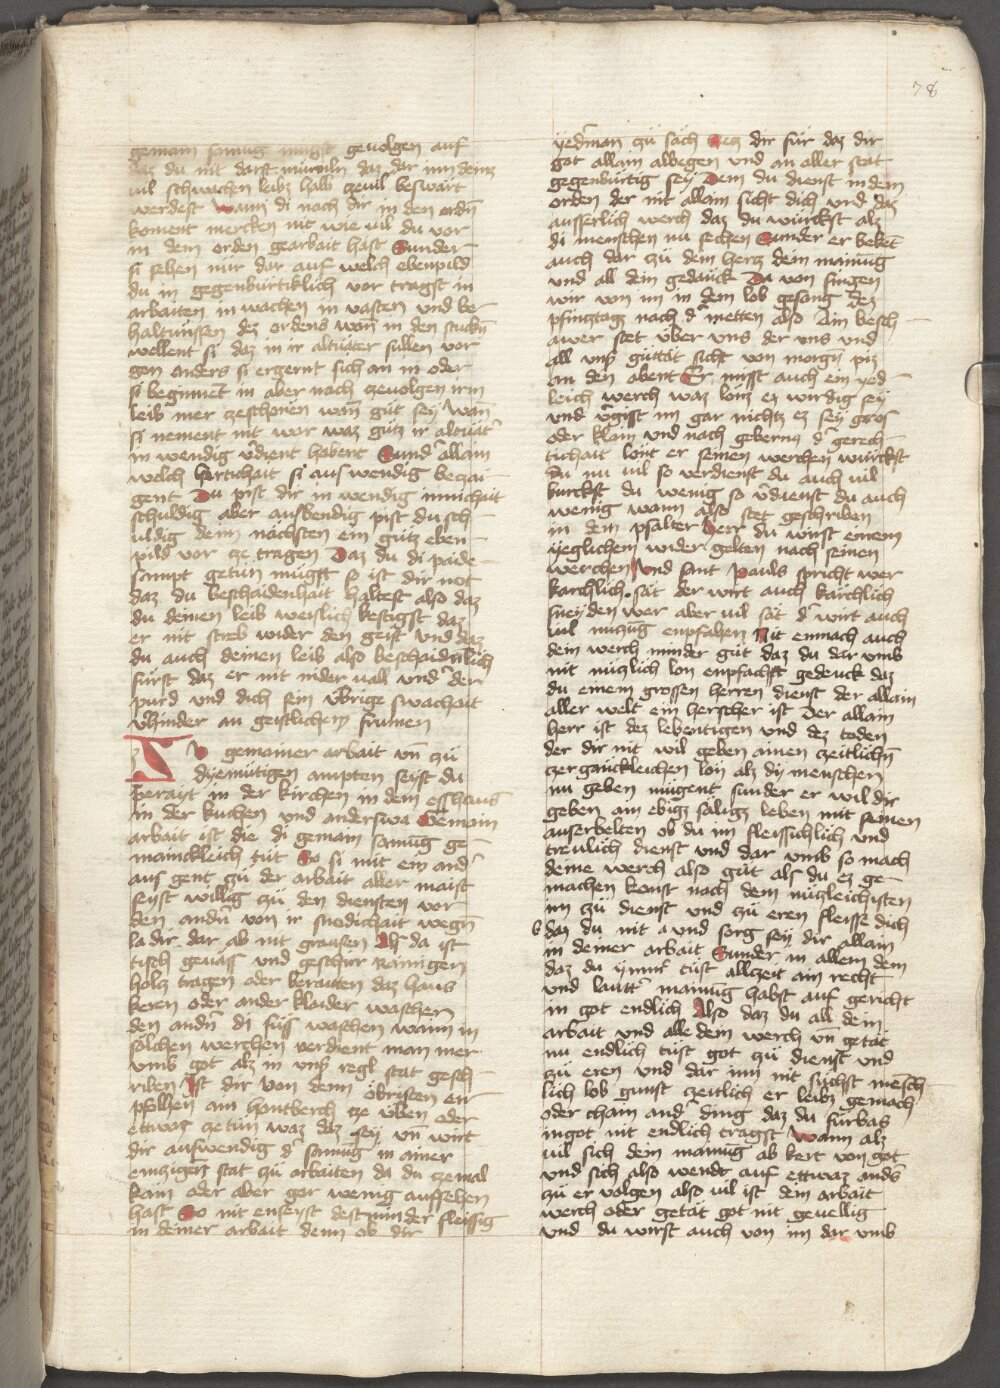 78
gemain samūg mügst gevolgen auf
daz du nit darft mürmln daz dar inn deinz
vil schwachen leibz halb zevil beswärt
werdest Wann di nach dir in den ordñ
koment mercken nit wie vil du vor
in dem orden gearbait hast Sunder
si sehen nür dar auf welch ebenpild
du in gegenbürtiklich vor tragst in
arbaiten in wachen in vasten und be¬
haltnüssen dez ordens wañ in den stuckñ
wellent si daz in ir altväter süllen vor
gen anders si ergernt sich an in oder
si beginnēt in aber nach zevolgen irm
leib mer zeschonen wañ güt sey Wan
si nement nit war waz gütz ir altvāt᷑
in wendig v᷑dient habent Sund᷑ allain
welch hertichait si aus wendig bezai¬
gent Du pist dir in wendig innichait
schuldig aber ausbendig pist du sch¬
uldig deim nächsten ein gütz eben¬
pild vor ze tragen Daz du di paide¬
sampt getün mügst so ist dir not
daz du beschaidenhait haltest also daz
du deinen leib weislich kestigst daz
er nit streb wider den geist und daz
du auch deinen leib also beschaidn̄lich
fürst daz er nit nider vall und᷑ der
pürd und dich sein übrige swachait
v᷑hinder an geistlichem frumen
Zu gemainer arbait vn̄ zü
dyemütigen ampten seyst du
perayt in der kirchen in dem esshaus
in der kuchen und anderswa Gemain
arbait ist die di gemain samūg ge¬
mainckleich tüt So si mit ein and᷑
aus gent zü der arbait aller maist
seyst willig zü den diensten vor¬
den andn̄ von ir snödichait wegn̄
la dir dar ab nit grausen Alz da ist
tisch geväss und geschirr rainigen
holtz tragen oder beraitten daz haus
keren oder ander klaider waschen
den andn̄ di füss waschen wann in
sölchen werchen verdient man mer
vmb got alz in vnß regl stat gesch¬
riben Ist dir von dem öbristen en¬
pfolhen ain hantberch ze üben oder
ettwaz zetün waz daz sey vn̄ wirt
dir auswendig d᷑ samūg in ainer
ainzigen stat zü arbaiten da du zemal
kain oder aber gar wenig aufsehen
hast So nit enseyst destminder fleissig
in deiner arbait denn ob dir
yed᷑man zü säch Setz dir für daz dir
got allain albegen und an aller stat
gegenbürtig sey Dem du dienst in dem
orden der nit allain sicht dich und daz
ausserlich werch daz du würckst alz
di menschen nu sechen Sunder er bekēt
auch dar zü dein hertz dein mainūg
und all dein gedänck Da von singen
wir von im in dem lob gesang dez
pfinztagz nach d᷑ metten also Ain besch¬
awer stet über uns der uns und
all vnß güttat sicht von morgn̄ piz
an den abent Er mist auch ein yed¬
leich werch waz lonz ez wirdig sey
und v᷑gist im gar nichtz ez sey gros
oder klain und nach geberng d᷑ gerech¬
tichait lönt er seinen werchen würckst
du nu vil so verdienst du auch vil
bürckst du wenig so v᷑dienst du auch
wenig wann also stet geschriben
in dem psalter Herr du wirst einem
yeglichem wider gelten nach seinen
werchen Und sant pauls spricht wer
kärchlich sät der wirt auch kärchlich
sneyden wer aber vil sät d᷑ wirt auch
vil nuczūg enpfahen Nit enmach auch
dein werch minder güt daz du dar umb
nit nützlich lon enpfachst gedenck daz
du einem grossen herren dienst der allain
aller welt ein herscher ist Der allain
herr ist dez lebentigen und dez toden
der dir nit wil geben ainen zeitlichn̄
zergänckleichen lon alz dy menschen
nu geben mügent sunder er wil dir
geben ain ebigz säligz leben mit seinen
auserbelten ob du im fleissichlich und
treulich dienst und dar umb so mach
deine werch also güt als du ez ge¬
machen kanst nach dem nützleichisten
im zü dienst und zü eren fleisse dich
b daz du nit a und sorg sey dir allain
in deiner arbait Sunder in allem dem
daz du ymm᷑ tüst allzeit ain recht
und lautt᷑ mainūg habst auf gericht
in got endlich Also daz du all dein
arbait und alle dein werch vn̄ getät
nu endlich tüst got zü dienst und
zü eren und dar inn nit süchst mēsch
lich lob gunst zeitlich er leibz gemach
oder chain and᷑ ding daz du fürbas
ingot nit endlich tragst Wann alz
vil sich dein mainūg ab kert von got
und sich also wendt auf ettwaz anders
zü er volgen also vil ist dein arbait
werch oder getät got nit gevellig
und du wirst auch von im dar umb